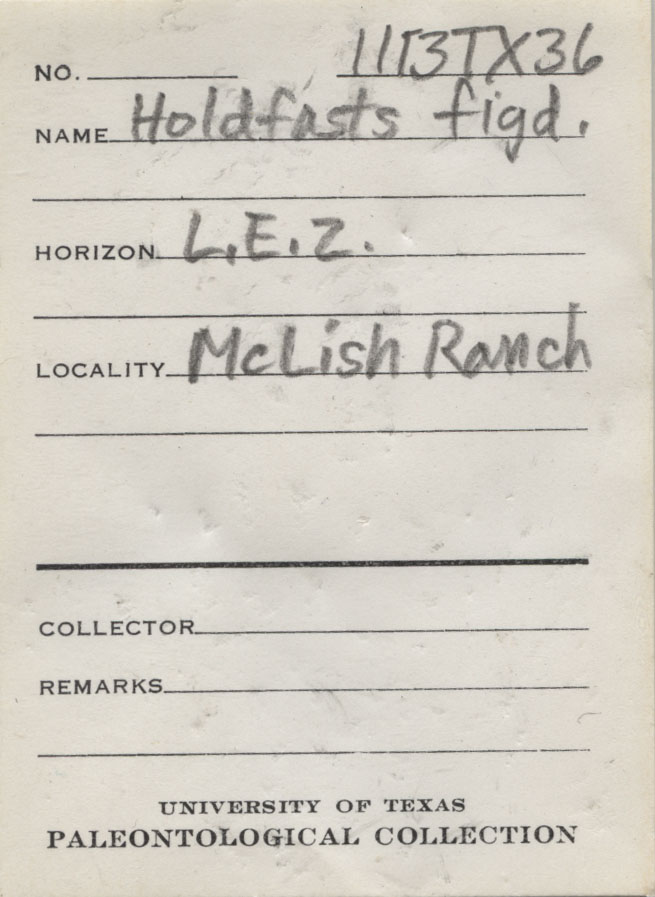 NO. 1113TX36
NAME Holdfasts figd.
HORIZON L.E.Z.
LOCALITY McLish Ranch
COLLECTOR
REMARKS
UNIVERSITY OF TEXAS
PALEONTOLOGICAL COLLECTION